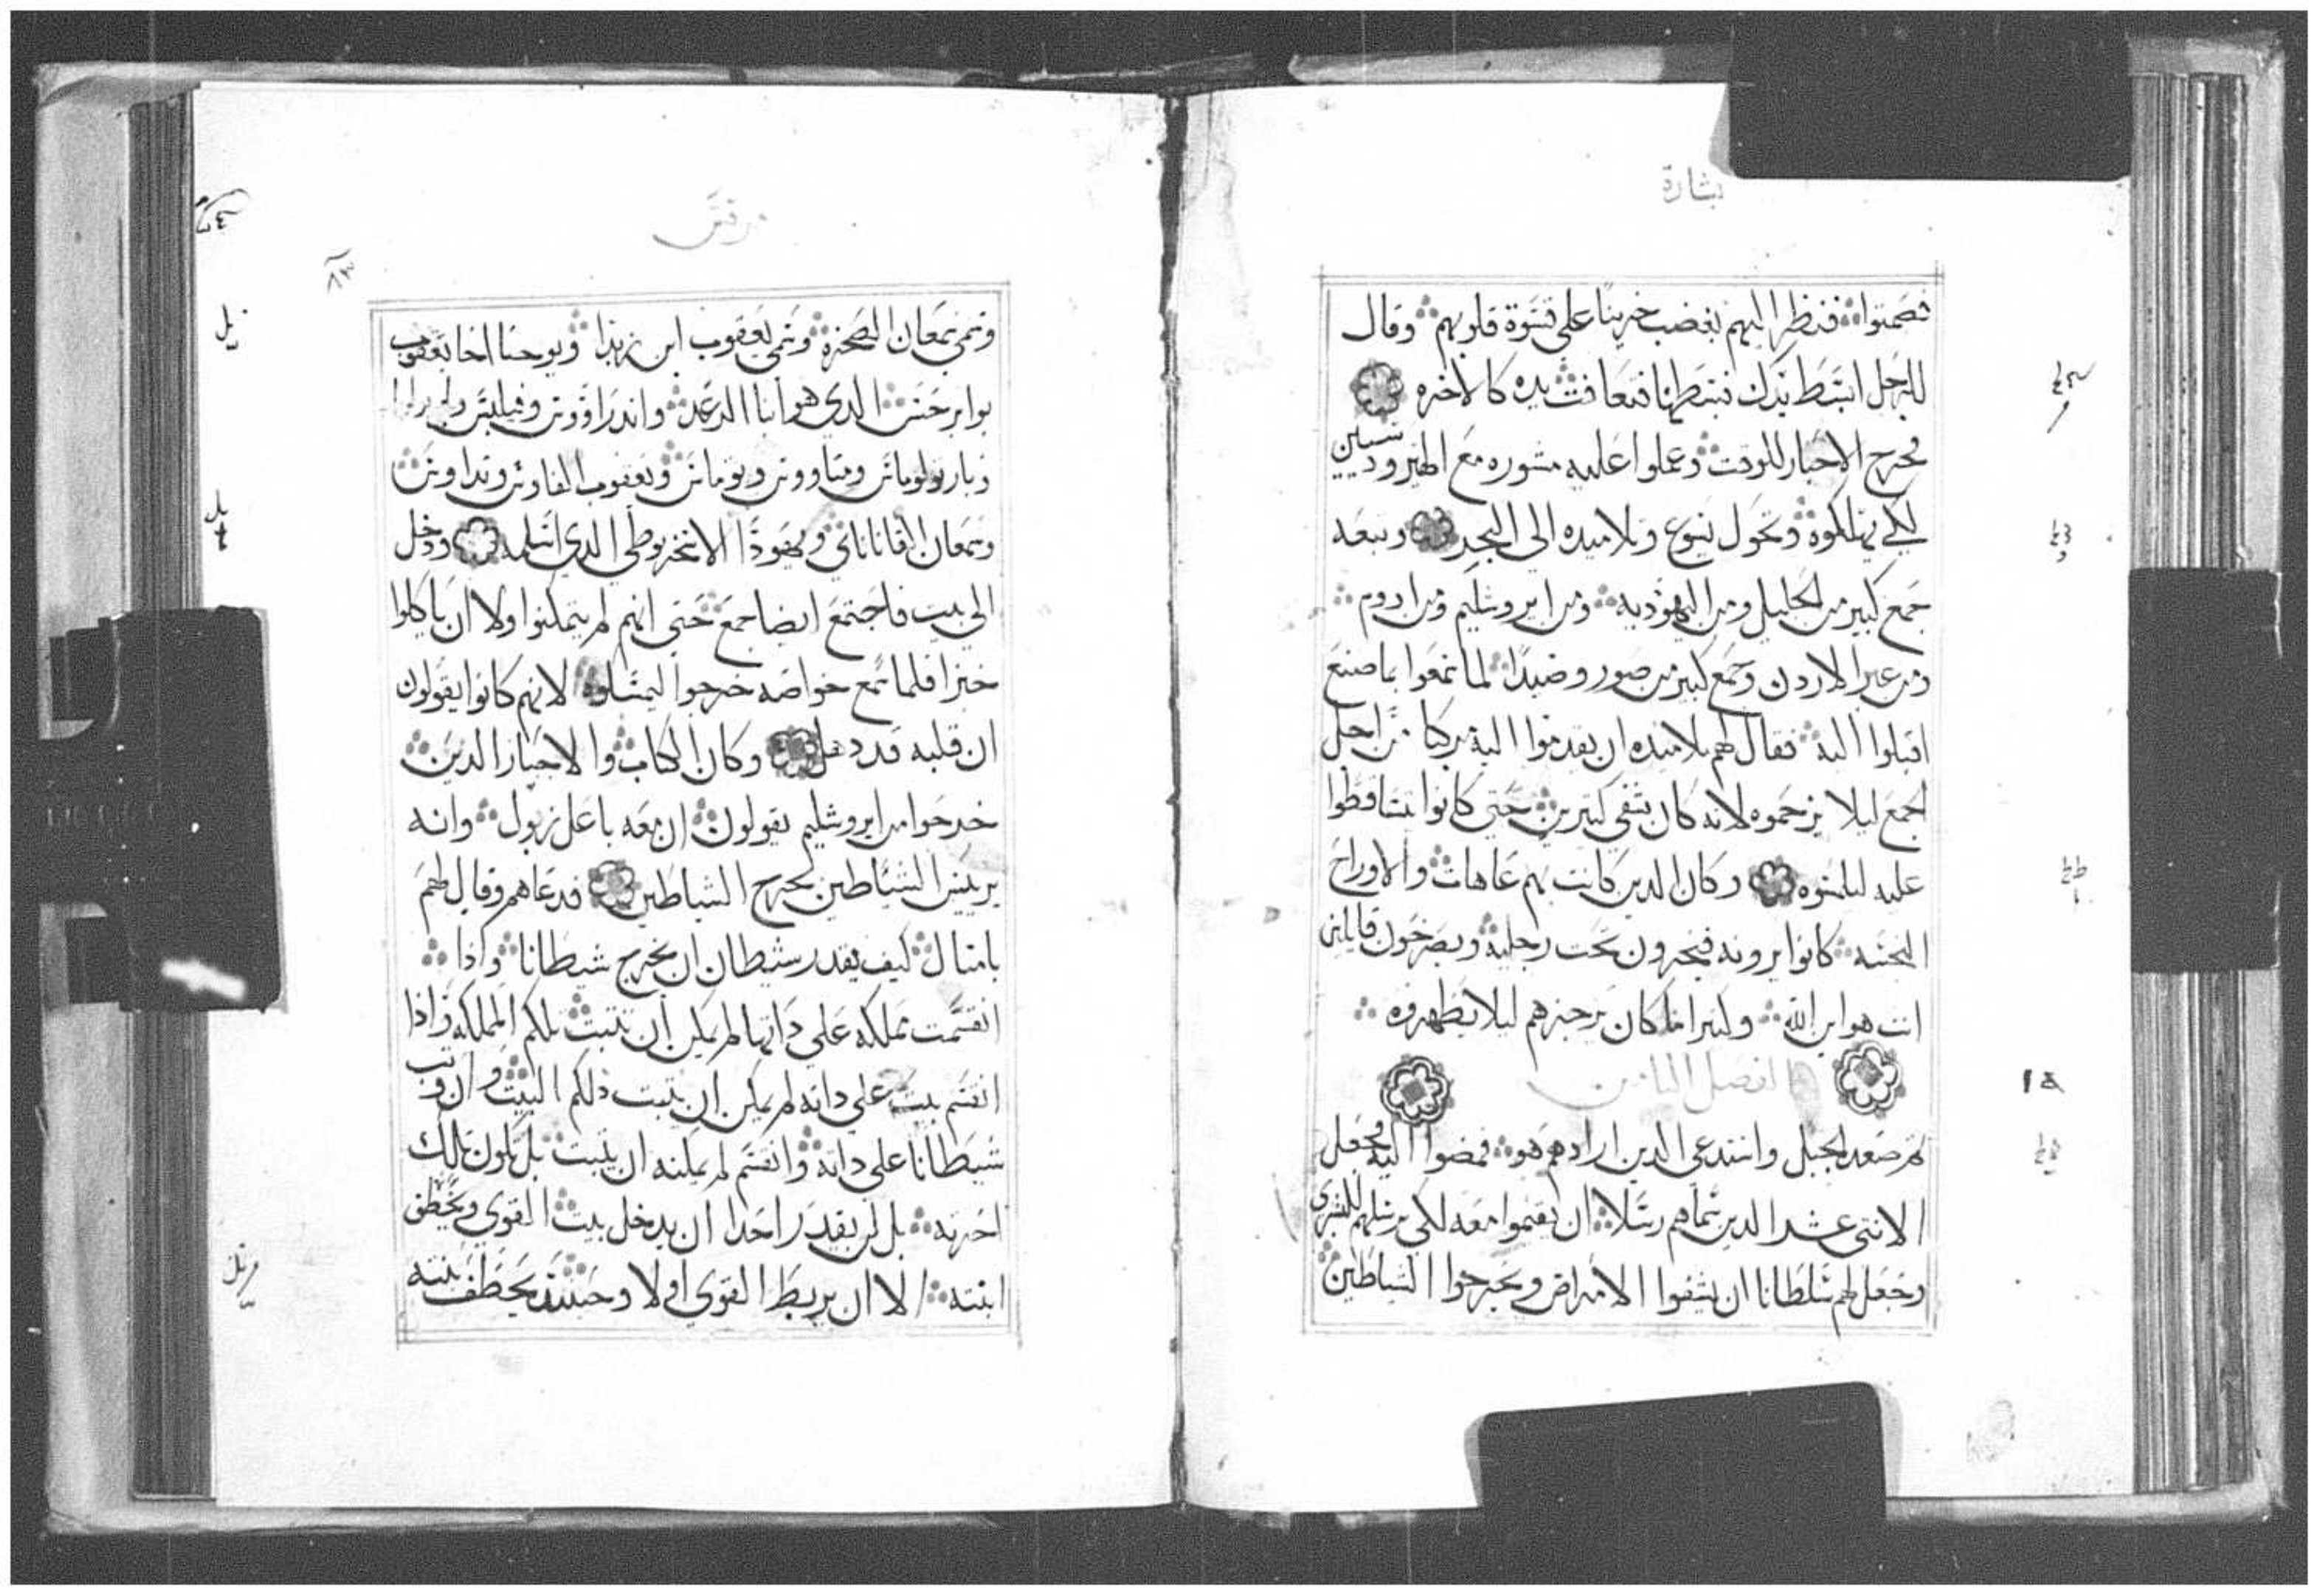 بشارة
فصمتوا فنظر اليهم بغضب حزينا على قسوة قلوبهم وقال
للرجل ابسط يدك فبسطها فتعافت يده كالاخره
فخرج الاحبار للوقت وعملوا عليه مشوره مع الهيروديسيين
لكي يهلكوه وتحول يسوع وتلاميده الى البحر وتبعه
جمع كبير من الجليل ومن اليهوديه ومن ايروشليم ومن ادوم
ومن عبر الاردن وجمع كبير من صور وصيدا لما سمعوا بما صنع
اقبلوا اليه فقال لهم تلاميده ان يقدموا اليه مركبا من اجل
الجمع ليلا يزحموه لانه كان يشفي كثيرين حتى كانوا يتساقطوا
عليه ليلمسوه وكان الدين كانت بهم عاهات والاوراح
النجسه كانوا يرونه فيخرون تحت رجليه ويصرخون قايلين
انت هو ابن الله وكثيرا ما كان يزجرهم ليلا يظهروه
الفصل الثامن
ثم صعد الجبل واستدعى الدين ارادهم هو فمضوا اليه فجعل
الاثني عشر الدين سماهم رسلا ان يقيموا معه لكي يرسلهم للبشرى
وجعل لهم سلطانا ان يشفوا الامراض ويخرجوا الشياطين
مرقس
٨٣
وسمى سمعان الصخره وسمى يعقوب ابن زبدا ويوحنا اخا يعقوب
الدي هو ابنا الرعد واندراووس وفيلبس
وبارتولوماس ومتاووس وتوماس ويعقوب الفاوس وتداوس
وسمعان القانانايي ويهودا الاسخريوطي الدي اسلمه ودخل
الى بيت فاجتمع ايضا جمع حتى انهم لم يتمكنوا ولا ان ياكلوا
خبزا فلما سمع خواصه خرجوا ليمسكوه لانهم كانوا يقولون
ان قلبه قد دهل وكان الكتاب والاحبار الدين
خرجوا من ايروشليم يقولون ان معه باعل زبول وانه
برييس الشياطين يخرج الشياطين فدعاهم وقال لهم
بامثال كيف يقدر شيطان ان يخرج شيطانا واذا
انقسمت مملكه على داتها لم يمكن ان تثبت تلكم المملكه واذا
انقسم بيت على داته لم يمكن ان يثبت ذلكم البيت وان وثب
شيطانا على داته وانقسم لم يمكنه ان يثبت بل تكون تلك
اخرته بل لن يقدر احدا ان يدخل بيت القوي ويخطف
ابنته الا ان يربط القوي اولا وحينئذ يخطف بيته